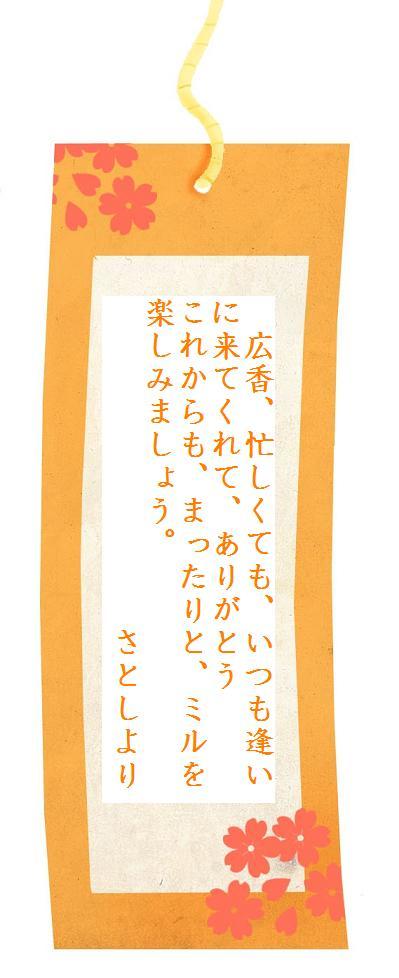 広香、忙しくても、いつも逢い
に来てくれて、ありがとう
これからも、まったりと、ミルを
楽しみましょう。
さとしより